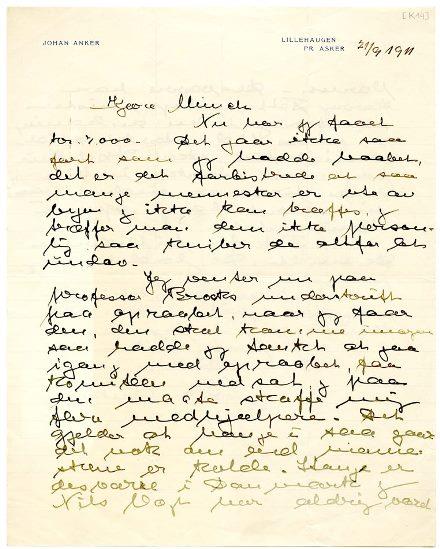 [K143]
JOHAN ANKER
LILLEHAUGEN
PR. ASKER
21/9 1911
Kjære Munch
Nu har jeg faaet
tos. 7000. Det gaar ikke saa
fort som jeg hadde haabet,
det er det at saa
mange mennesker er ute av
byen og ikke kan træffes, og
træffer man dem ikke person-
lig saa kniber de altfor let
undav.
Jeg venter nu paa
professor Brøggers underskrift
paa opraabet, naar jeg faar
den, den skal komme imorgen
saa hadde jeg tænkt at gaa
igang med opraabet, faa
komiteen nedsat, og paa
den maate skaffe mig
flere medhjælpere. Det
gjelder at hænge i saa gaar
det nok om end mennesk
er kolde. Lange er
desværre i Danmark og
Nils Vogt har aldrig vært